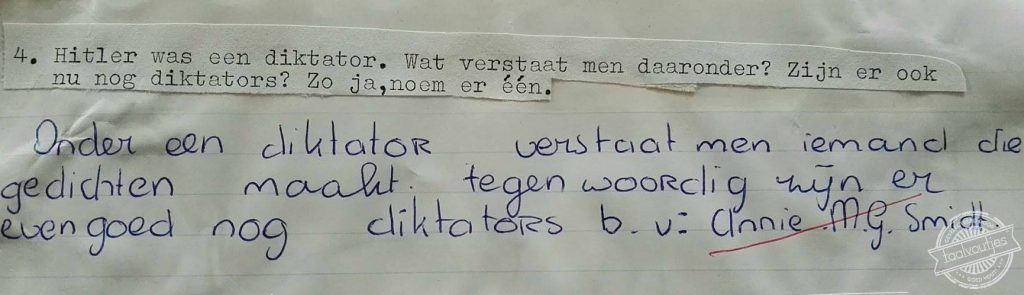 4. Hitler was een diktator. Wat verstaat men daaronder? Zijn er ook
nu nog diktators? Zo ja,noem er één.
Onder een diktator verstaat men iemand die
gedichten maakt. tegenwoordig zijn er
evengoed nog diktators b.v: Annie M.G. Smidt
taalvoutjes